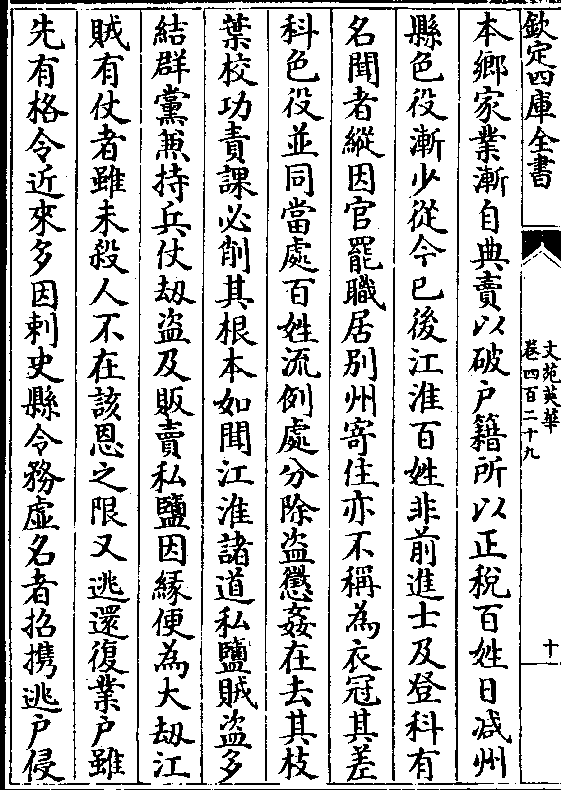 欽定四庫全書
文苑英華
卷四百二十九
十
本鄉家業漸自典賣以破户籍所以正税百姓日减州
縣色役漸少從今已後江淮百姓非前進士及登科有
名聞者縱因官罷職居别州寄住亦不稱為衣冠其差
科色役並同當處百姓流例處分除盗懲姦在去其枝
葉校功責課必削其根本如聞江淮諸道私鹽賊盗多
結群黨兼持兵仗刼盗及販賣私鹽因緣便為大刼江
賊有仗者雖未殺人不在該恩之限又逃還復業户雖
先有格令近來多因刺史縣令務虚名者招攜逃户侵